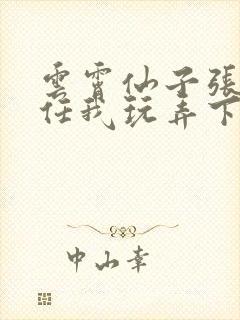 雲霄仙子張
任我玩弄下
中山幸